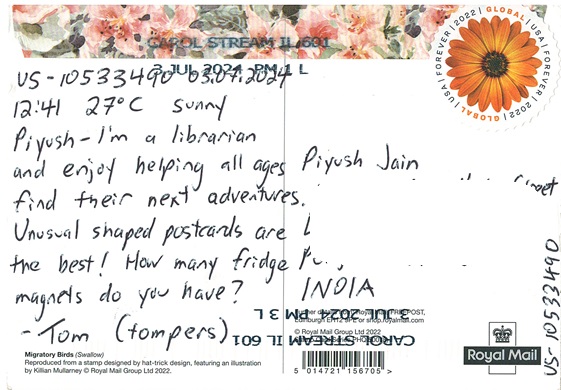 CAROL STREAM IL 601
3 JUL 2024 PM 4 L
US-10533490 03.07.2024
12:41 27°C sunny
Piyush - I'm a librarian
and enjoy helping all ages
find their next adventures.
Unusual shaped postcards are
the best! How many fridge
magnets do you have?
- Tom (tompers)
Migratory Birds (Swallow)
Reproduced from a stamp design by hat-trick design, featuring an illustration
by Killian Mullarney © Royal Mail Group Ltd 2022
GLOBAL | USA | FOREVER | 2022 | GLOBAL | USA | FOREVER | 2022 |
Piyush Jain
INDIA
CAROL STREAM IL 601
3 JUL 2024 PM 3 L
FREEPOST,
Edinburgh EH12 9PE or shop.royalmail.com
© Royal Mail Group Ltd 2022
5 014721 156705 >
Royal Mail
US-10533490